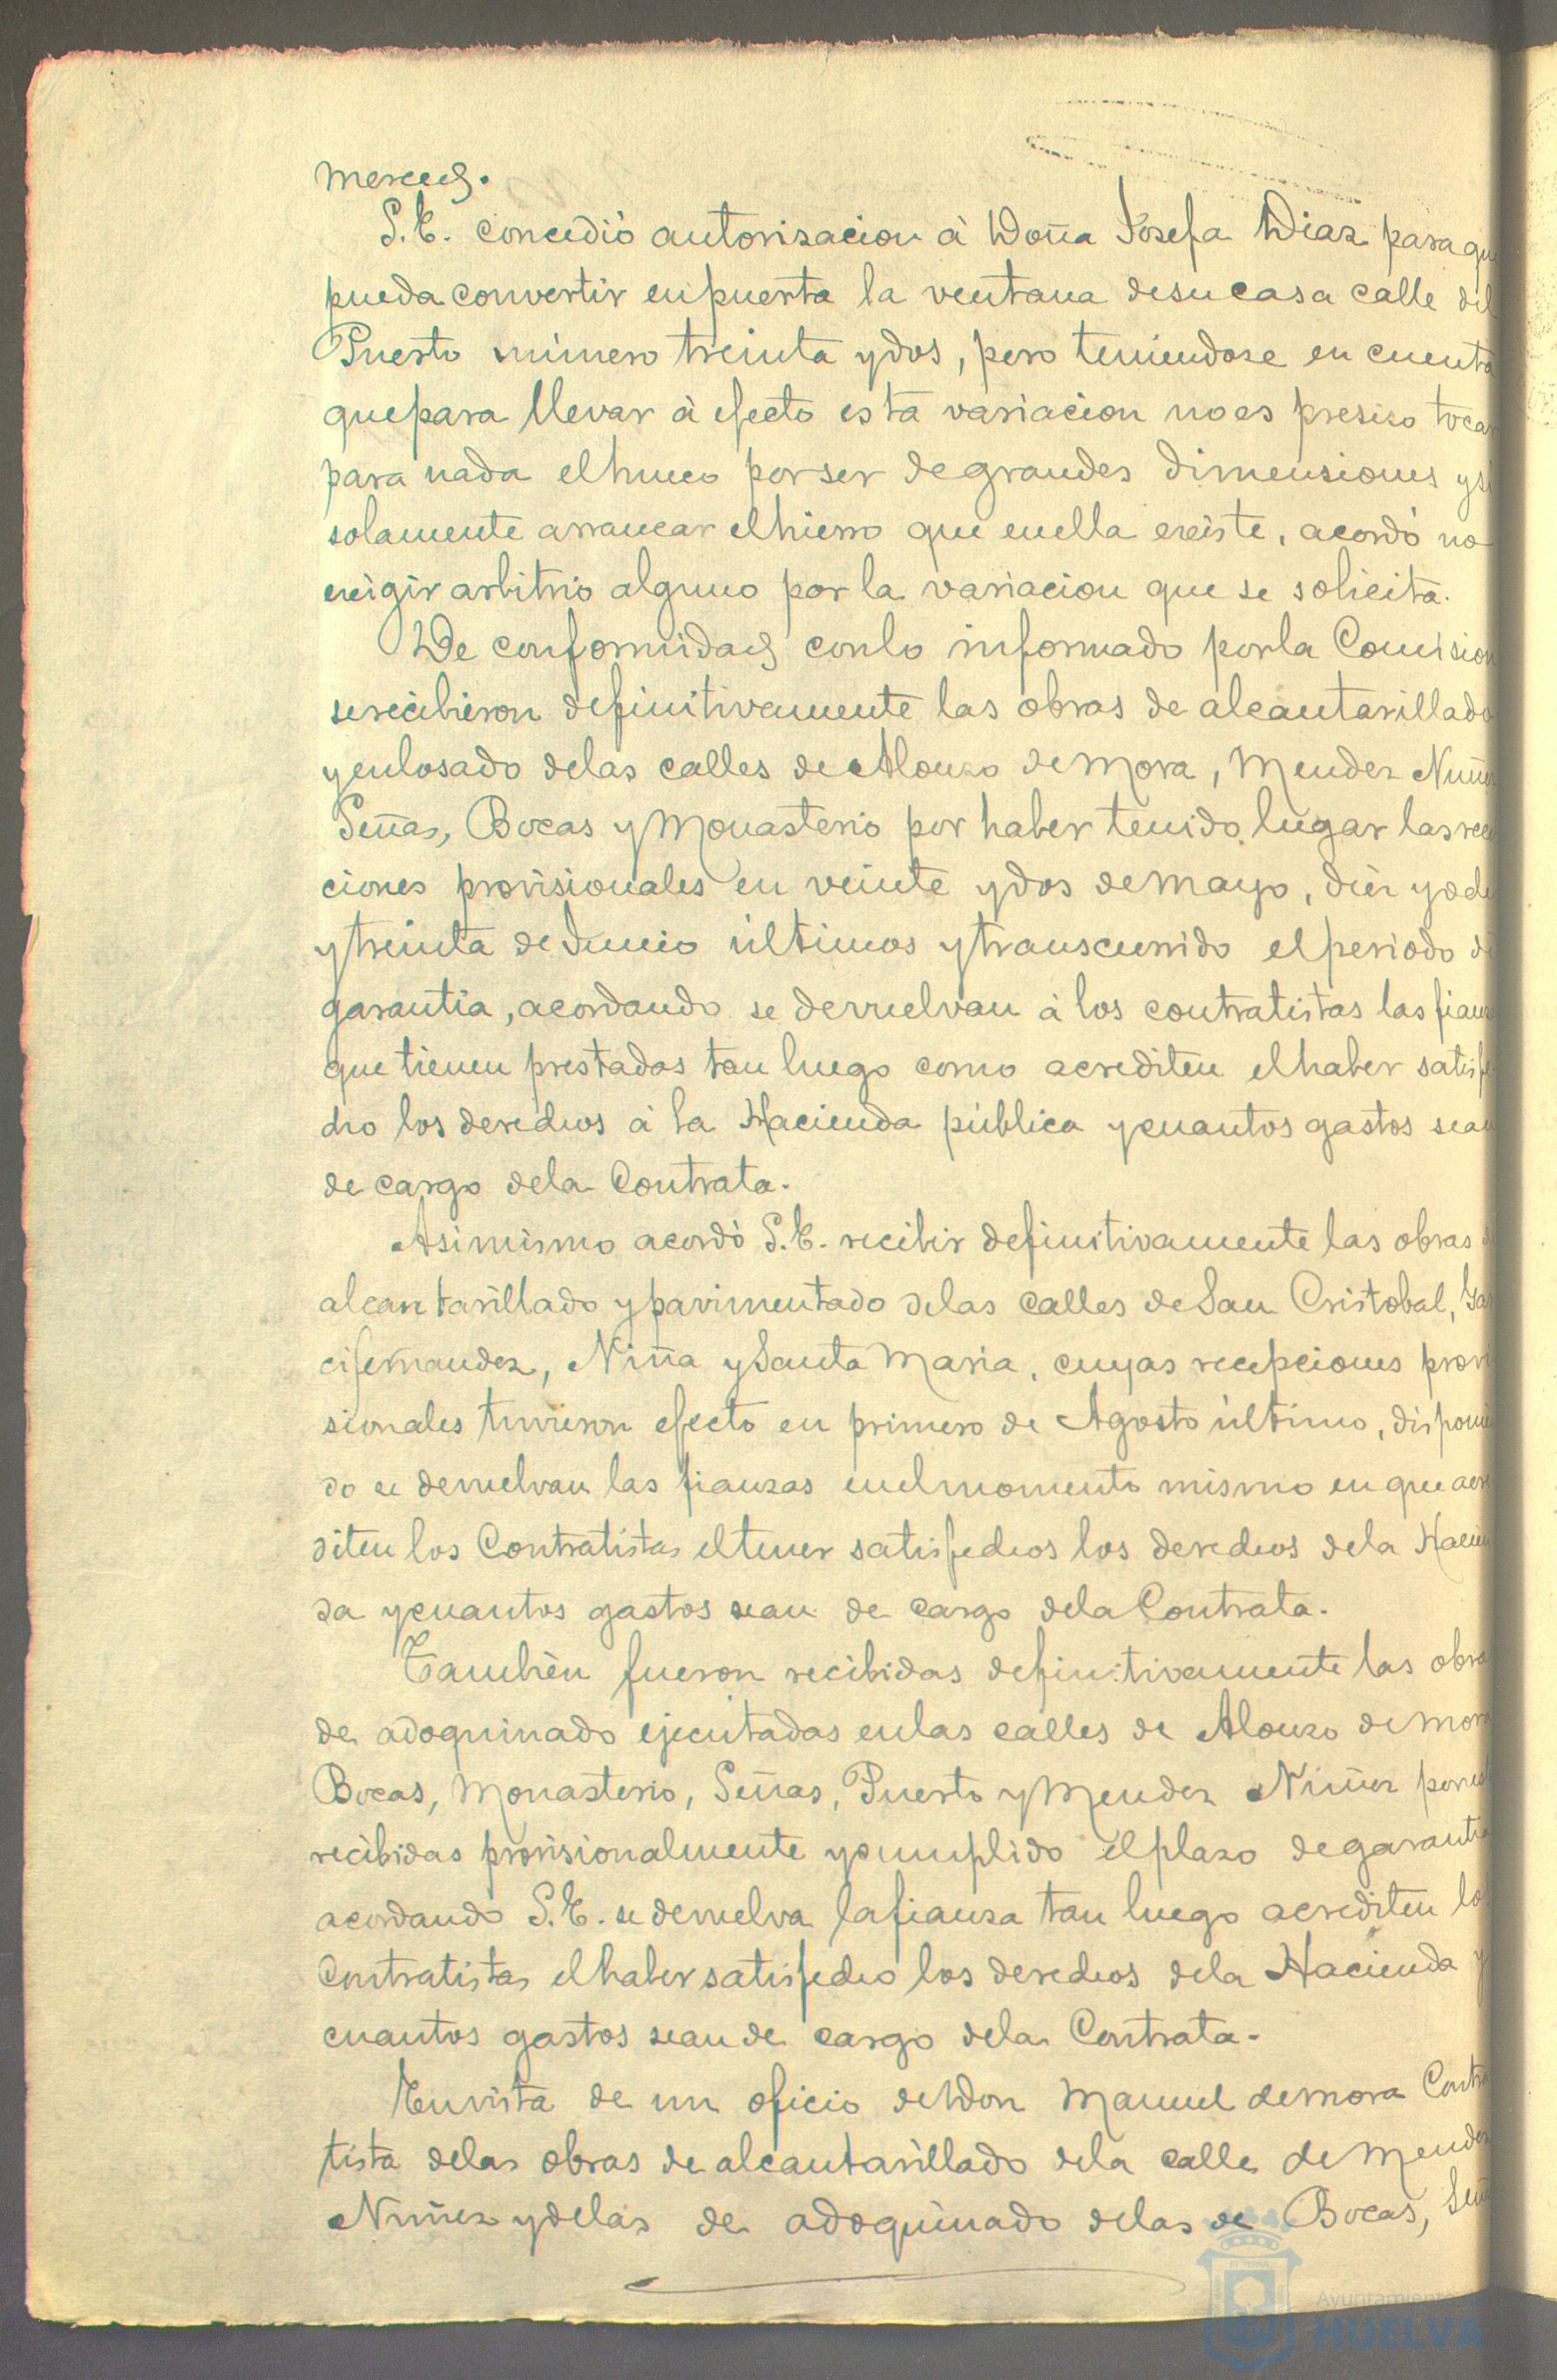 merced.
S.E. concedió autorisacion á Doña Josefa Diaz para que
pueda convertir en puerta la ventana de su casa calle del
Puerto número treinta y dos, pero teniendose en cuenta
que para llevar á efecto esta variacion no es presiso tocar
para nada el hueco por ser de grandes dimensiones y si
solamente arrancar el hierro que en ella existe, acordó no
exigir arbitrio alguno por la variacion que se solicita.
De conformidad con lo informado por la Comision
se recibieron definitivamente las obras de alcantarillado
y enlosado de las calles de Alonzo de Mora, Mendez Nuñez
Señas, Bocas y Monasterio por haber tenido lugar las recep
ciones provisionales en veinte y dos de Mayo, diez y ocho
y treinta de Junio últimos y transcurrido el periodo de
garantia, acordando se devuelvan á los contratistas las fianzas
que tienen prestadas tan luego como acrediten el haber satisfe
cho los derechos á la Hacienda pública y cuantos gastos sean
de cargo de la Contrata.
Asimismo acordó S.E. recibir definitivamente las obras de
alcantarillado y pavimentado de las calles de San Cristobal, Gar
cifernandez, Niña y Santa Maria, cuyas recepciones provi
sionales tuvieron efecto en primero de Agosto último, disponien
do se devuelvan las fianzas en el momento mismo en que acre
diten los Contratistas el tener satisfechos los derechos de la Hacien
da y cuantos gastos sean de cargo de la Contrata.
Tambien fueron recibidas definitivamente las obras
de adoquinado ejecutadas en las calles de Alonzo de Mora
Bocas, Monasterio, Señas, Puerto y Mendez Nuñez por
recibidas provisionalmente y cumplido el plazo de garantia
acordando S.E. se devuelva la fianza tan luego acrediten los
Contratistas el haber satisfecho los derechos de la Hacienda y
cuantos gastos sean de cargo de la Contrata.
En vista de un oficio de Don Manuel de Mora Contra
tista de las obras de alcantarillado de la calle de Mendez
Nuñez y de las de adoquinado de las de Bocas, Señ
Ayuntamiento
HUELVA